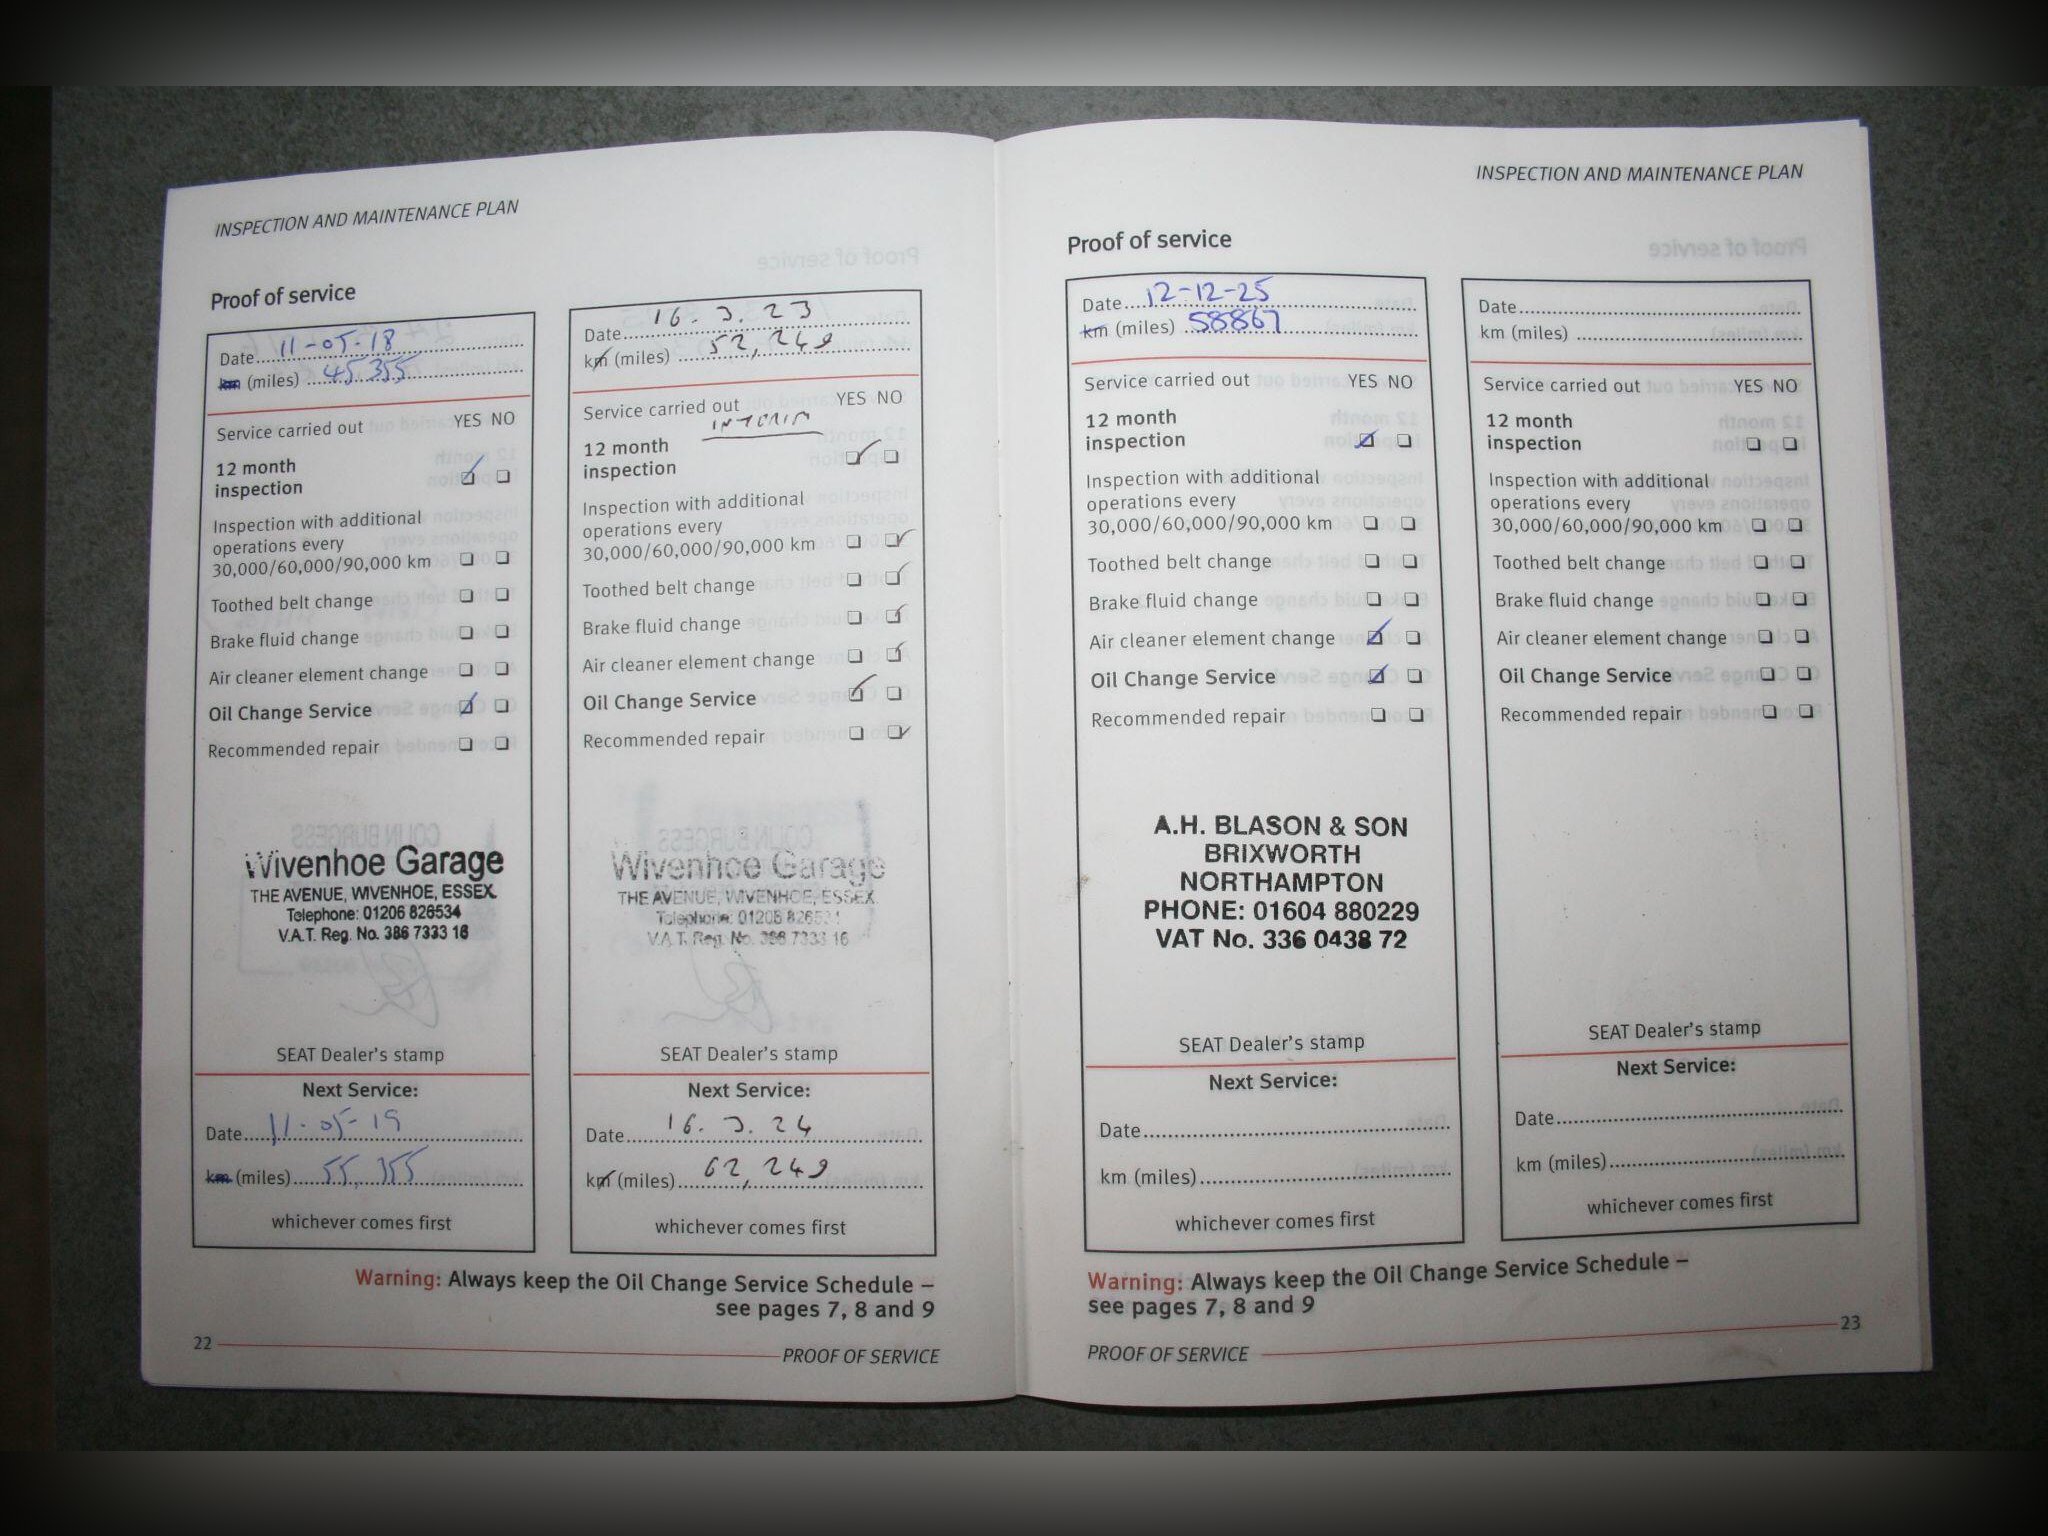 INSPECTION AND MAINTENANCE PLAN
Proof of service
Date 11-05-18
km (miles) 45,355
Service carried out YES NO
12 month
inspection
Inspection with additional
operations every
30,000/60,000/90,000 km
Toothed belt change
Brake fluid change
Air cleaner element change
Oil Change Service
Recommended repair
Wivenhoe Garage
THE AVENUE, WIVENHOE, ESSEX.
Telephone: 01206 826534
V.A.T. Reg. No. 386 7333 16
SEAT Dealer's stamp
Next Service:
Date 11-05-19
km (miles) 55,355
whichever comes first
Date 16.3.23
km (miles) 52,249
Service carried out YES NO
INTERIM
12 month
inspection
Inspection with additional
operations every
30,000/60,000/90,000 km
Toothed belt change
Brake fluid change
Air cleaner element change
Oil Change Service
Recommended repair
Wivenhoe Garage
THE AVENUE, WIVENHOE, ESSEX.
Telephone: 01206
V.A.T. Reg. No. 386 7333 16
SEAT Dealer's stamp
Next Service:
Date 16.3.24
km (miles) 62,249
whichever comes first
Warning: Always keep the Oil Change Service Schedule –
see pages 7, 8 and 9
22
PROOF OF SERVICE
INSPECTION AND MAINTENANCE PLAN
Proof of service
Date 12-12-25
km (miles) 58867
Service carried out YES NO
12 month
inspection
Inspection with additional
operations every
30,000/60,000/90,000 km
Toothed belt change
Brake fluid change
Air cleaner element change
Oil Change Service
Recommended repair
A.H. BLASON & SON
BRIXWORTH
NORTHAMPTON
PHONE: 01604 880229
VAT No. 336 0438 72
SEAT Dealer's stamp
Next Service:
Date
km (miles)
whichever comes first
Date
km (miles)
Service carried out YES NO
12 month
inspection
Inspection with additional
operations every
30,000/60,000/90,000 km
Toothed belt change
Brake fluid change
Air cleaner element change
Oil Change Service
Recommended repair
SEAT Dealer's stamp
Next Service:
Date
km (miles)
whichever comes first
Warning: Always keep the Oil Change Service Schedule –
see pages 7, 8 and 9
23
PROOF OF SERVICE